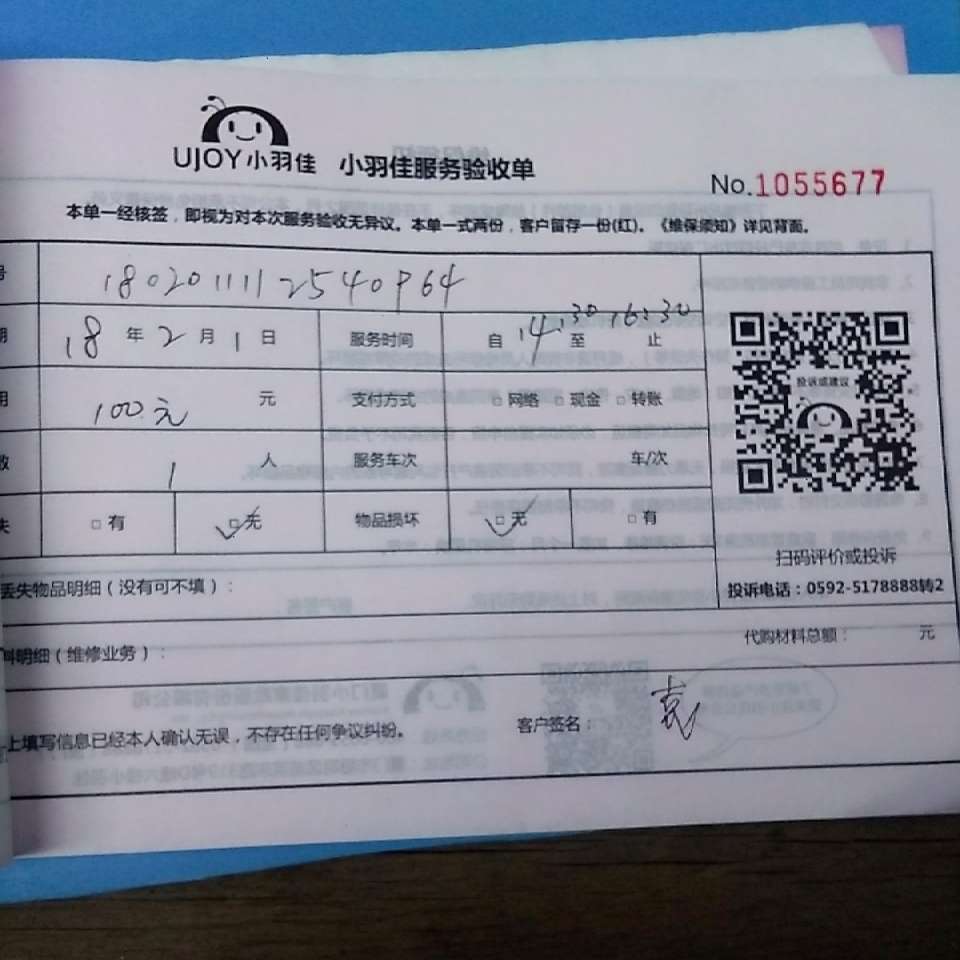 UJOY小羽佳 小羽佳服务验收单
No.1055677
本单一经核签，即视为对本次服务验收无异议。本单一式两份，客户留存一份(红)。《维保须知》详见背面。
号 1802011112540964
期 18 年 2 月 1 日 服务时间 自 14:30 至 16:30 止
用 100元 元 支付方式 □ 网络 □ 现金 □ 转账
数 1 人 服务车次 车/次
失 □ 有 ✓□ 无 物品损坏 ✓□ 无 □ 有
投诉或建议
扫码评价或投诉
投诉电话：0592-5178888转2
丢失物品明细（没有可不填）：
料明细（维修业务）： 代购材料总额： 元
上填写信息已经本人确认无误，不存在任何争议纠纷。 客户签名：